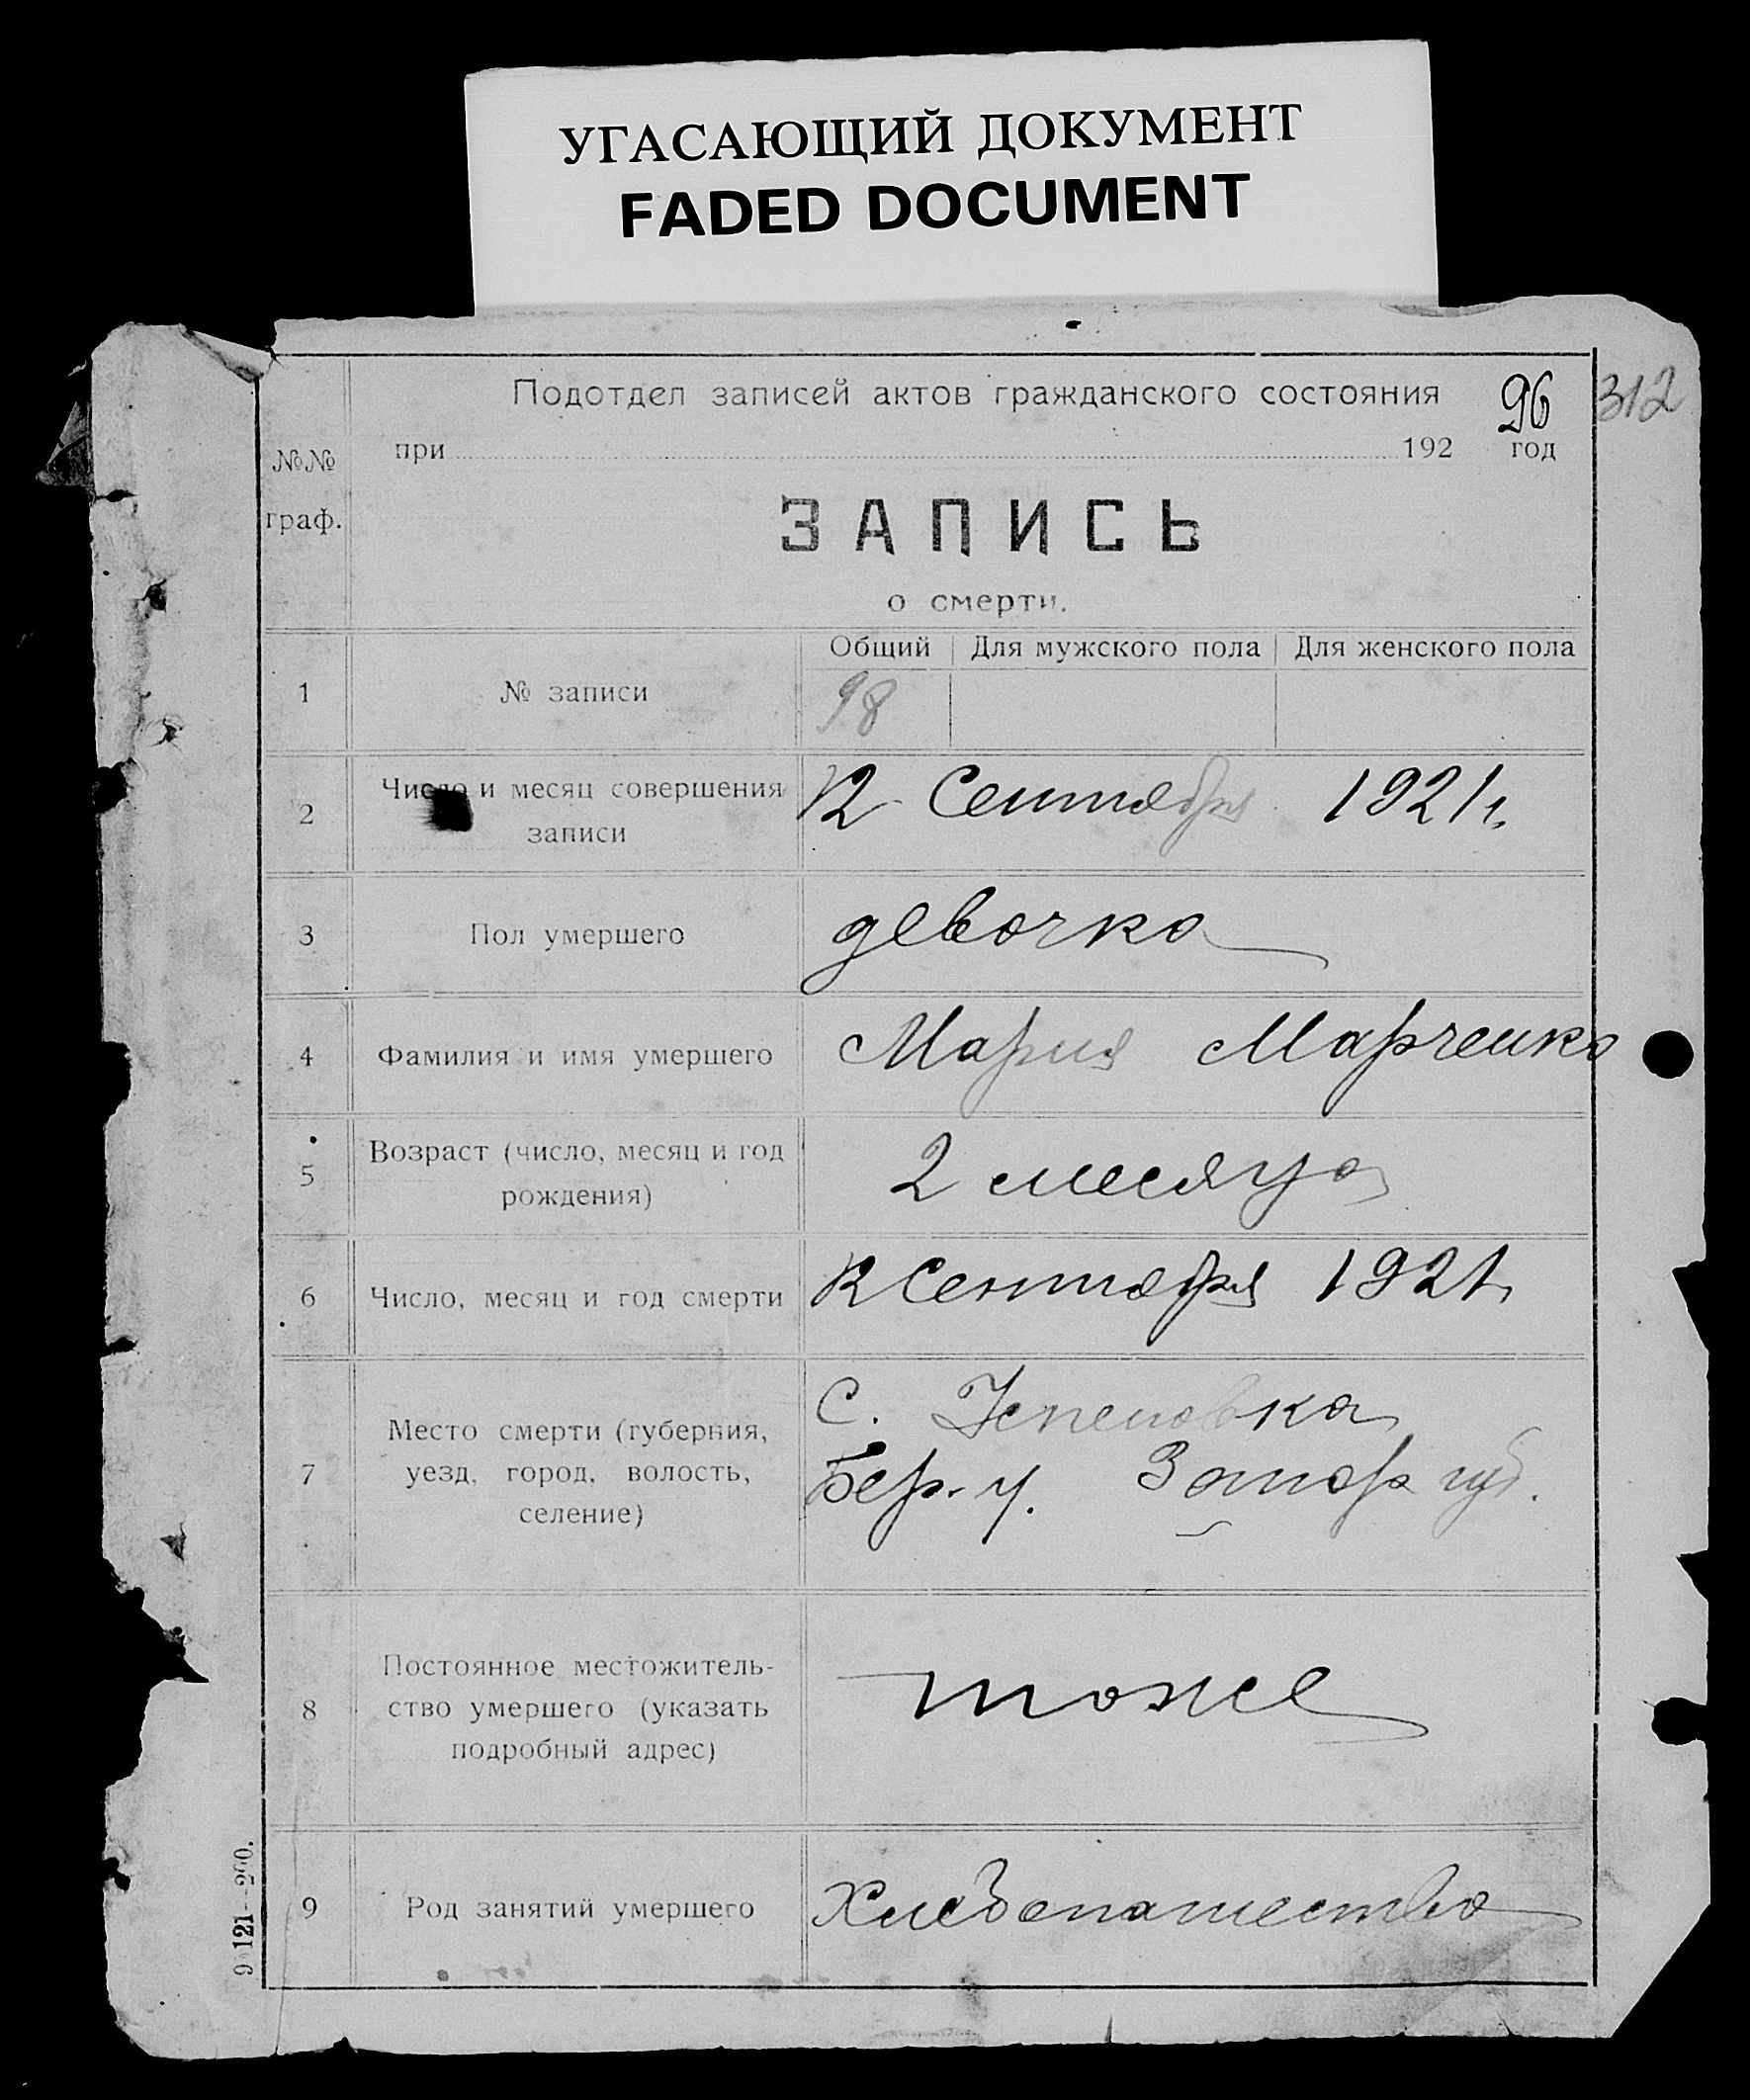 УГАСАЮЩИЙ ДОКУМЕНТ
FADED DOCUMENT
Подотдел записей актов гражданского состояния
96
312
при 192 год
№№
граф.
ЗАПИСЬ
о смерти.
Общий Для мужского пола Для женского пола
1 № записи 98
2 Число и месяц совершения
записи
12 Сентября 1921 г.
3 Пол умершего девочка
4 Фамилия и имя умершего Мария Марченко
5 Возраст (число, месяц и год
рождения)
2 месяца
6 Число, месяц и год смерти 12 Сентября 1921
7 Место смерти (губерния,
уезд, город, волость,
селение)
С. Успеновка
Бер. у. Запор губ.
8 Постоянное местожитель-
ство умершего (указать
подробный адрес)
тоже
9 Род занятий умершего Хлебопашество